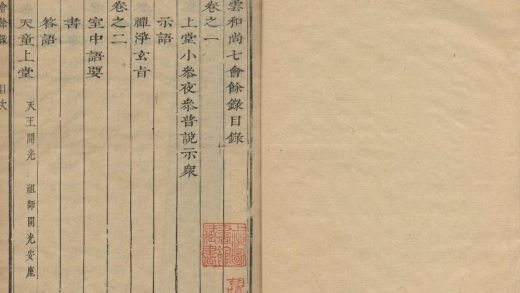 雲和尚七會餘錄目錄
卷之一
上堂小參夜參普說示眾
示語
禪淨玄旨
卷之二
室中語要
書
答語
天童上堂 天王開光 祖師開光安座
會餘錄 目次